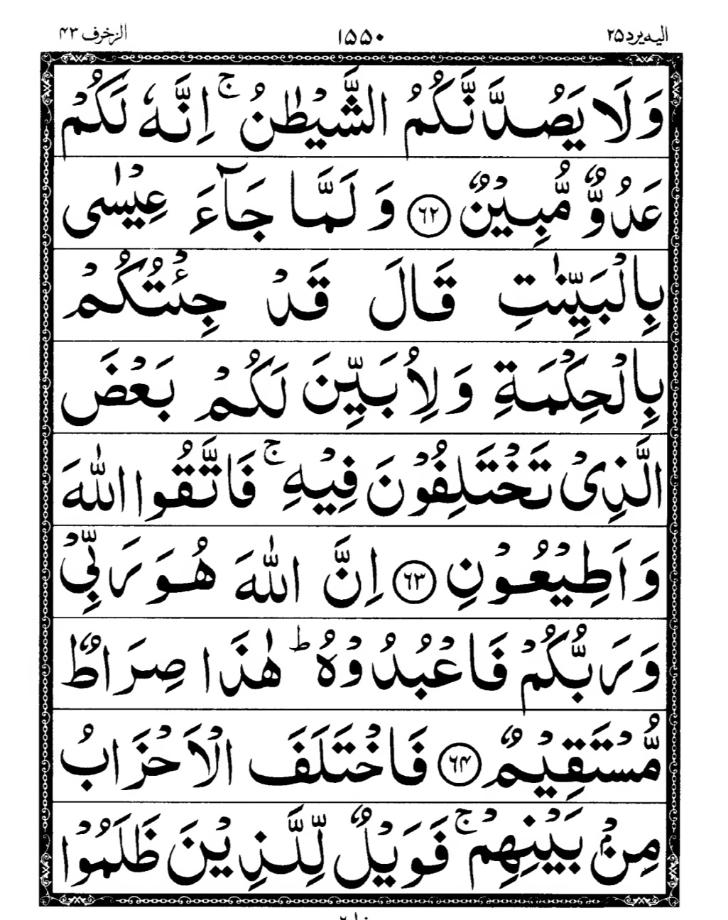 الیه یرد ۲۵ ۱۵۵۰ الزخرف ۴۳
وَلَا یَصُدَّنَّکُمُ الشَّیْطٰنُ ۚ اِنَّهٗ لَکُمْ
عَدُوٌّ مُّبِیْنٌ ﴿۶۲﴾ وَ لَمَّا جَآءَ عِیْسٰی
بِالْبَیِّنٰتِ قَالَ قَدْ جِئْتُکُمْ
بِالْحِکْمَةِ وَلِاُبَیِّنَ لَکُمْ بَعْضَ
الَّذِیْ تَخْتَلِفُوْنَ فِیْهِ ۚ فَاتَّقُوا اللّٰهَ
وَاَطِیْعُوْنِ ﴿۶۳﴾ اِنَّ اللّٰهَ هُوَ رَبِّیْ
وَرَبُّکُمْ فَاعْبُدُوْهُ ؕ هٰذَا صِرَاطٌ
مُّسْتَقِیْمٌ ﴿۶۴﴾ فَاخْتَلَفَ الْاَحْزَابُ
مِنْۢ بَیْنِهِمْ ۚ فَوَیْلٌ لِّلَّذِیْنَ ظَلَمُوْا